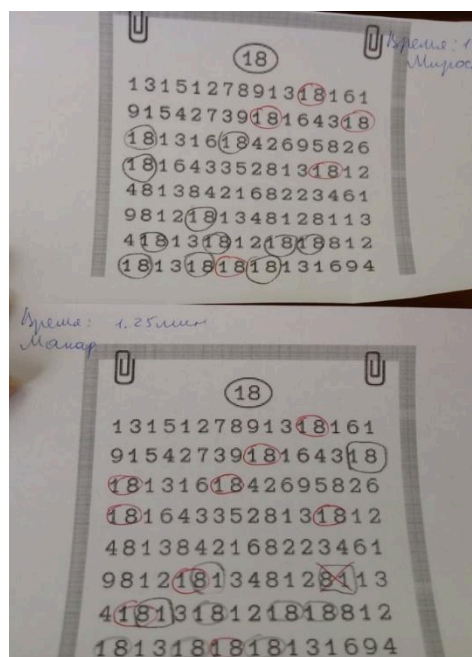 Время: 1
Мирос
18
131512789131 8161
91542739181643 18
181316184269 5826
181643352813 1812
481384216822 3461
981218134812 8113
418131812181 8812
181318181813 1694
Время: 1.25мин
Макар
18
1315127891318161
9154273918164318
1813161842695826
1816433528131812
4813842168223461
9812181348128113
4181318121818812
1813181818131694